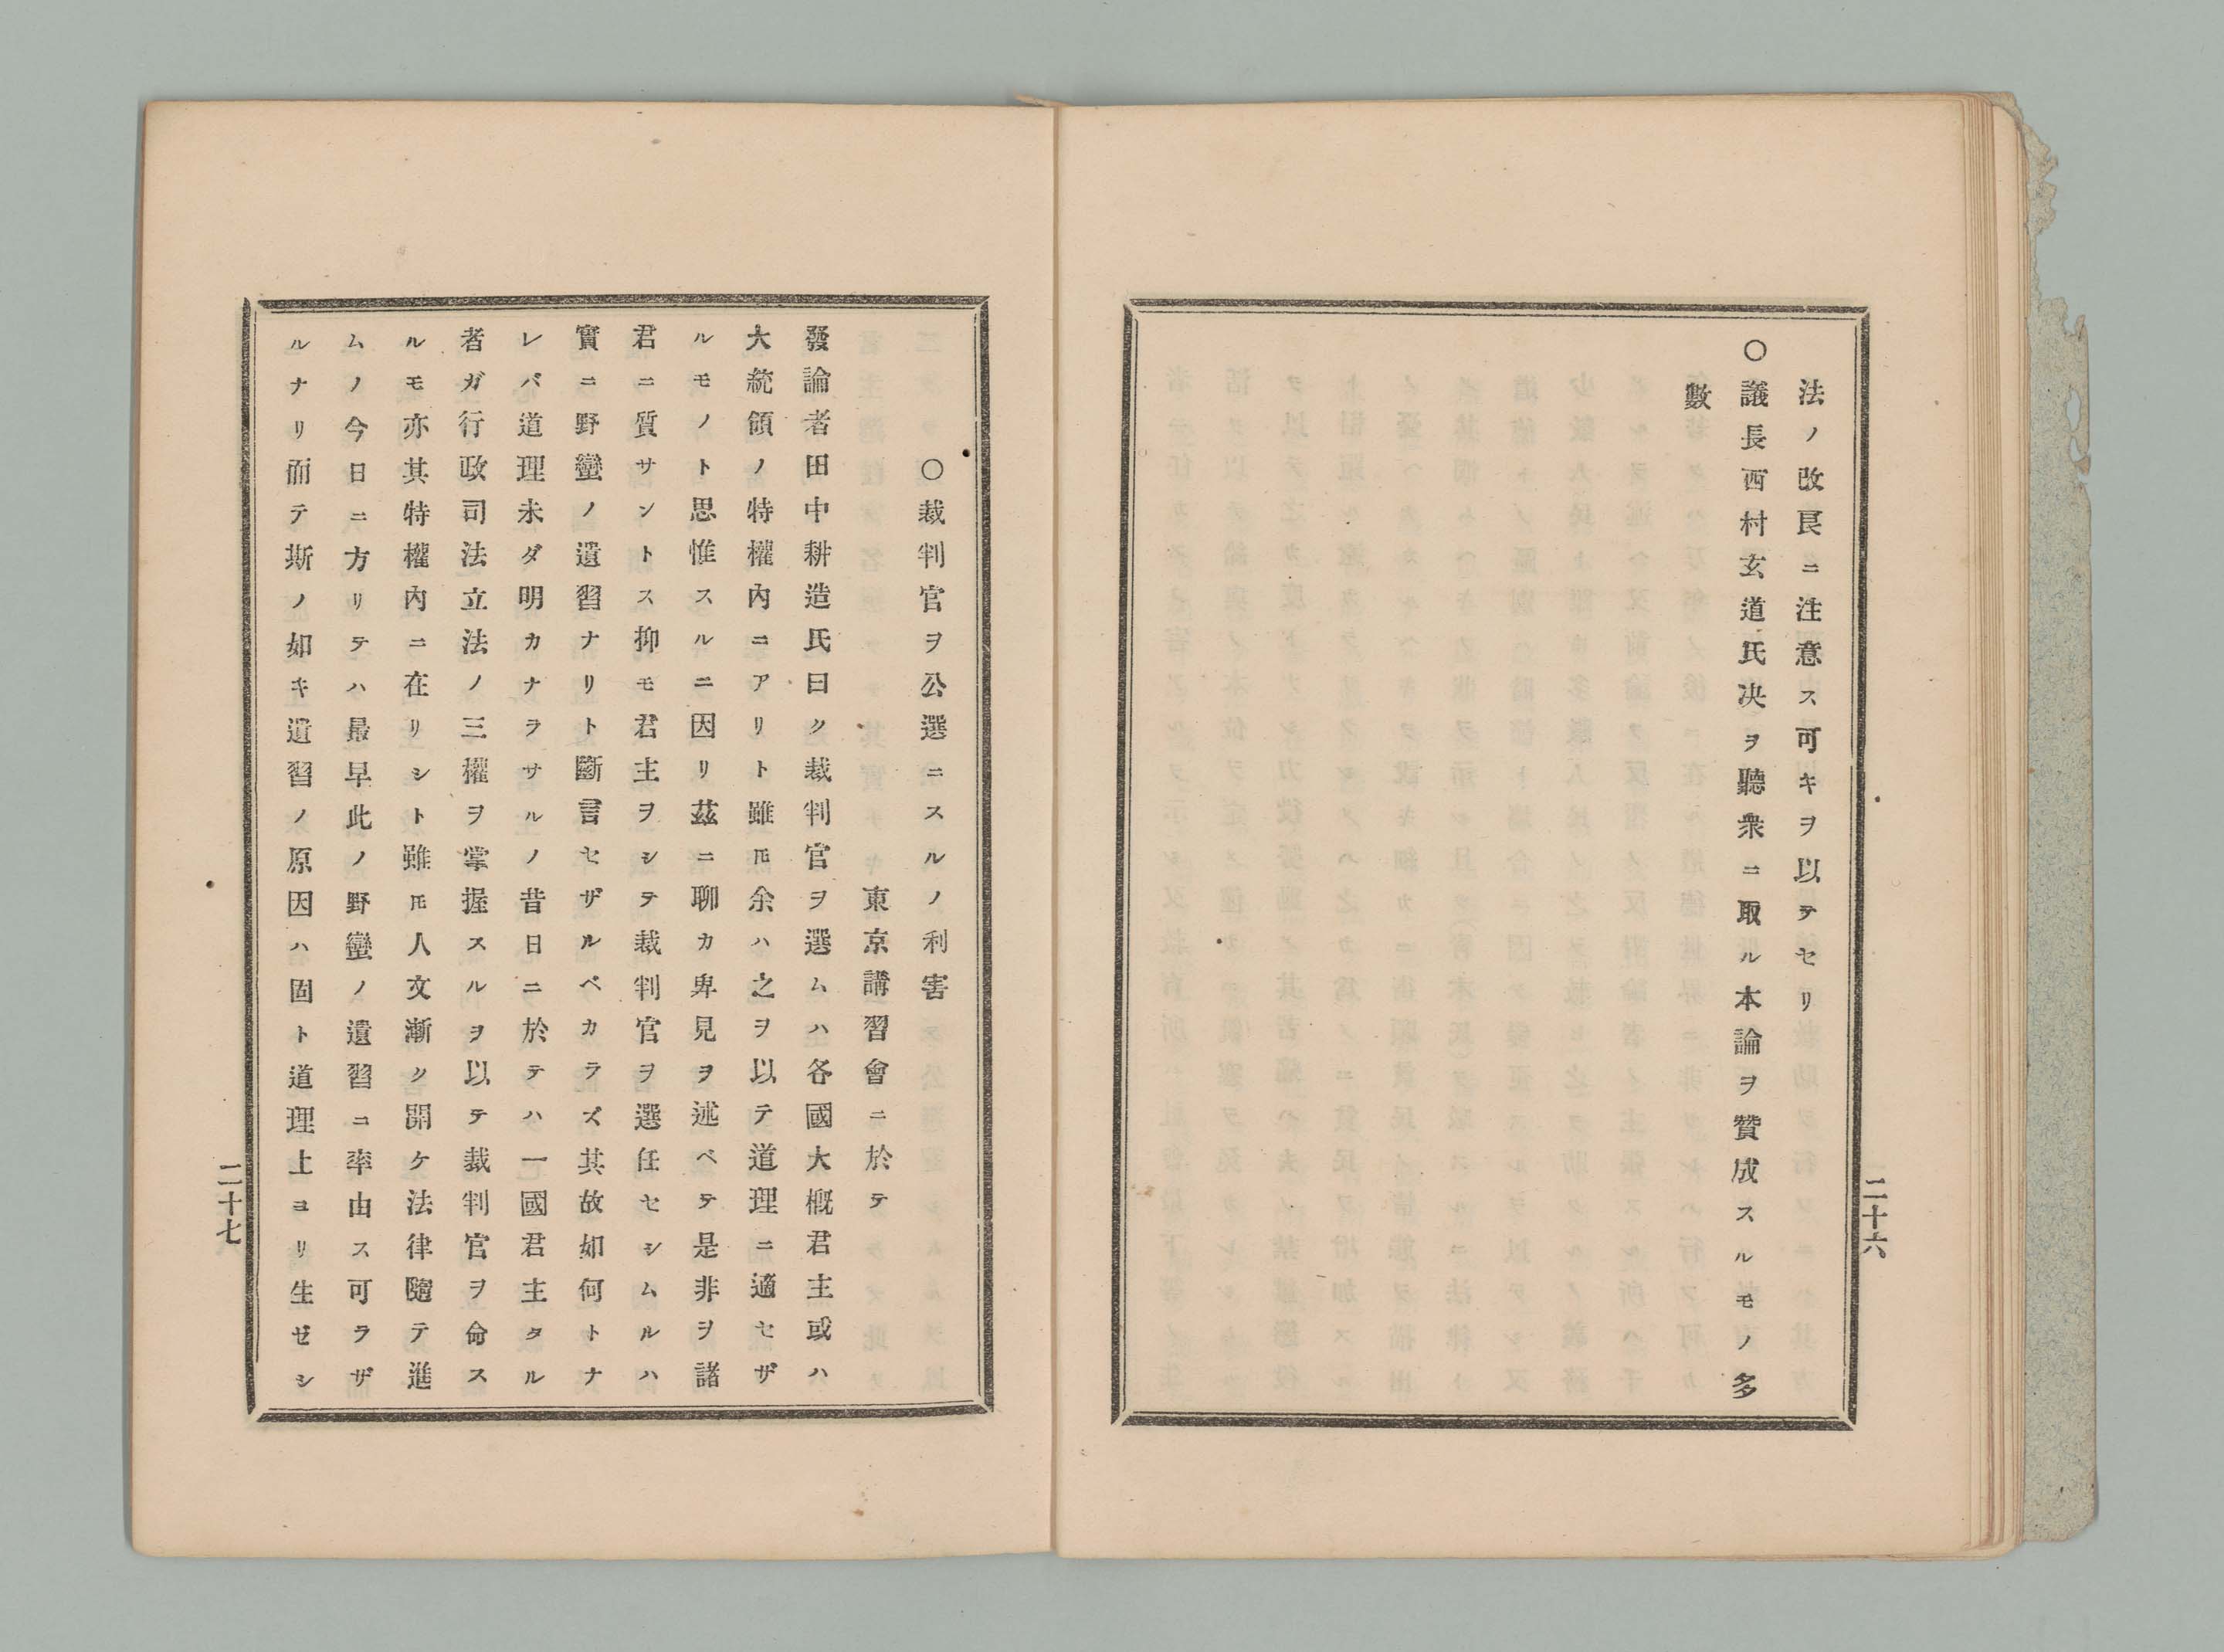 法ノ改良ニ注意ス可キヲ以テセリ
〇議長西村玄道氏決ヲ聽衆ニ取ル本論ヲ贊成スルモノ多
數
二十六
〇裁判官ヲ公選ニスルノ利害
東京講習會ニ於テ
發論者田中耕造氏曰ク裁判官ヲ選ムハ各國大概君主或ハ
大統領ノ特權內ニアリト雖𪜈余ハ之ヲ以テ道理ニ適セザ
ルモノト思惟スルニ因リ茲ニ聊カ卑見ヲ述ベテ是非ヲ諸
君ニ質サントス抑モ君主ヲシテ裁判官ヲ選任セシムルハ
實ニ野蠻ノ遺習ナリト斷言セザルベカラズ其故如何トナ
レバ道理未ダ明カナラサルノ昔日ニ於テハ一國君主タル
者ガ行政司法立法ノ三權ヲ掌握スルヲ以テ裁判官ヲ命ス
ルモ亦其特權內ニ在リシト雖𪜈人文漸ク開ケ法律隨テ進
ムノ今日ニ方リテハ最早此ノ野蠻ノ遺習ニ率由ス可ラザ
ルナリ而テ斯ノ如キ遺習ノ原因ハ固ト道理上ヨリ生ゼシ
二十七